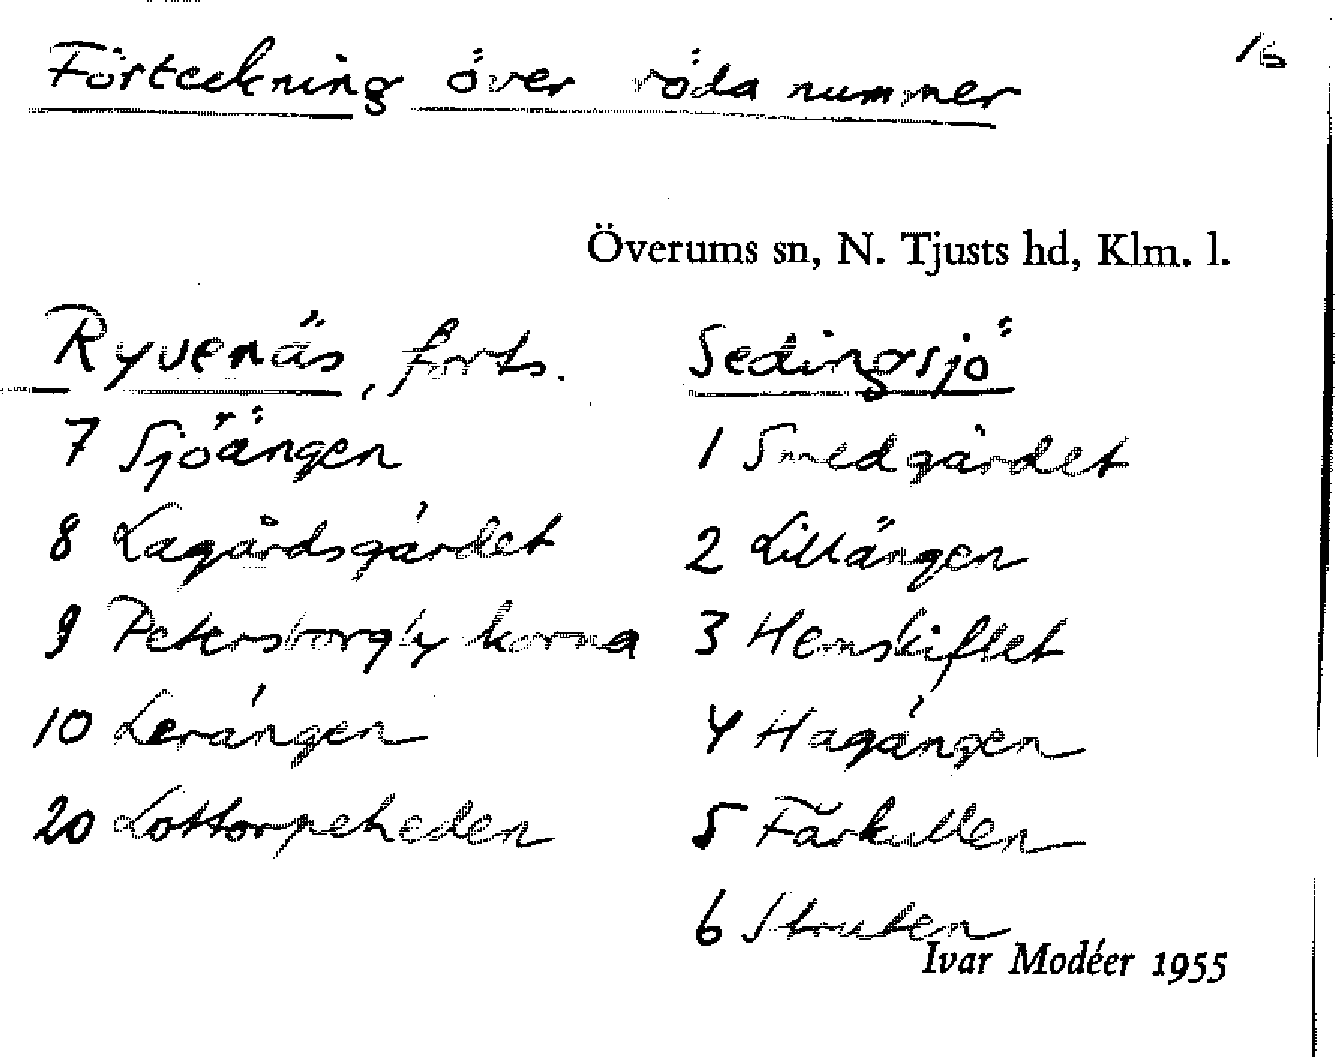 15
Förteckning över röda nummer
Överums sn, N. Tjusts hd, Klm. l.
Ryvenäs, forts.
7 Sjöängen
8 Lagårdsgärdet
9 Petersborgby korna
10 Lerängen
20 Lottorpeheden
Sedingsjö
1 Smedgärdet
2 Lillängen
3 Hemskiftet
4 Hagängen
5 Fårkullen
6 Struten
Ivar Modéer 1955